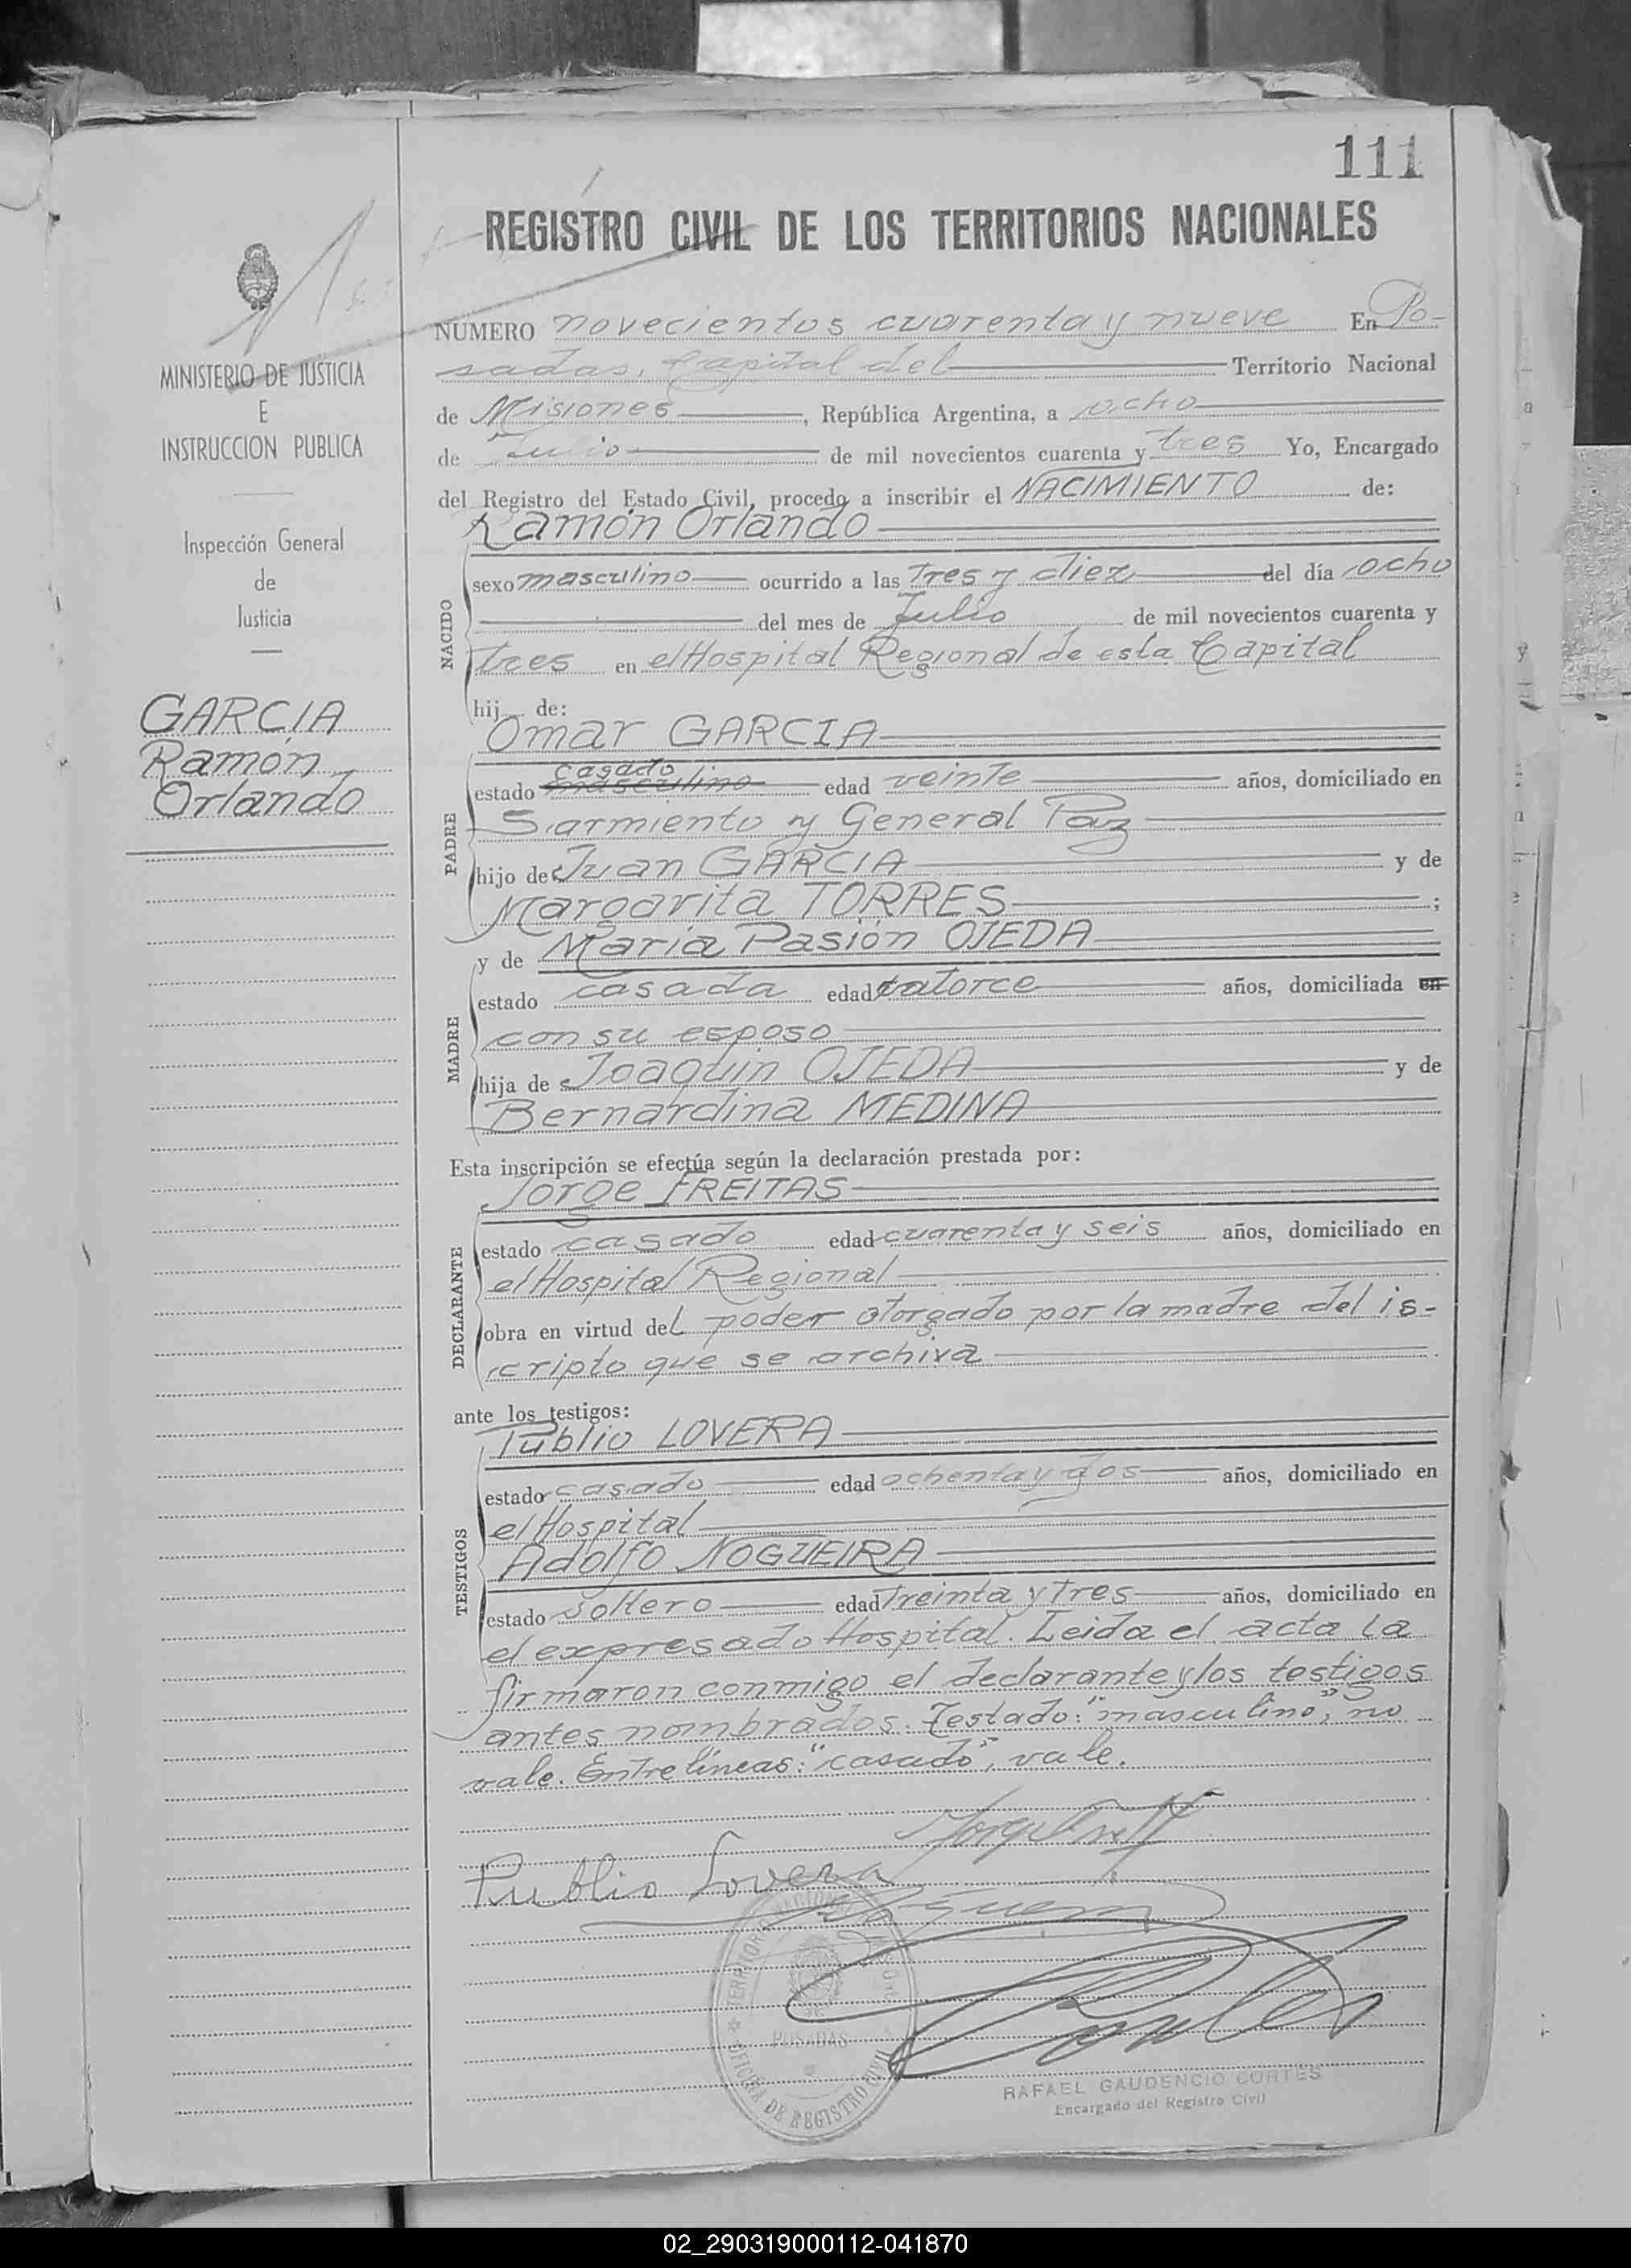 111
REGISTRO CIVIL DE LOS TERRITORIOS NACIONALES
MINISTERIO DE JUSTICIA
E
INSTRUCCION PUBLICA
Inspección General
de
Justicia
GARCIA
Ramón
Orlando
NUMERO novecientos cuarenta y nueve En Po-
sadas, Capital del Territorio Nacional
de Misiones, República Argentina, a ocho
de Julio de mil novecientos cuarenta y tres Yo, Encargado
del Registro del Estado Civil, procedo a inscribir el NACIMIENTO de:
Ramón Orlando
NACIDO
sexo masculino ocurrido a las tres y diez del día ocho
del mes de Julio de mil novecientos cuarenta y
tres en el Hospital Regional de esta Capital
hij de:
Omar GARCIA
PADRE
casado
estado masculino edad veinte años, domiciliado en
Sarmiento y General Paz
hijo de Juan GARCIA y de
Margarita TORRES;
y de María Pasión OJEDA
MADRE
estado casada edad catorce años, domiciliada en
con su esposo
hija de Joaquin OJEDA y de
Bernardina MEDINA
Esta inscripción se efectúa según la declaración prestada por:
Jorge FREITAS
DECLARANTE
estado casado edad cuarenta y seis años, domiciliado en
el Hospital Regional
obra en virtud del poder otorgado por la madre del is-
cripto que se archiva
ante los testigos:
Publio LOVERA
TESTIGOS
estado casado edad ochenta y dos años, domiciliado en
el Hospital
Adolfo NOGUEIRA
estado soltero edad treinta y tres años, domiciliado en
el expresado Hospital. Leida el acta la
firmaron conmigo el declarante y los testigos
antes nombrados. Testado: "masculino", no
vale. Entre líneas: "casado", vale.
Publio Lovera
POSADAS
OFICINA DE REGISTRO CIVIL
RAFAEL GAUDENCIO CORTES
Encargado del Registro Civil
02_290319000112-041870